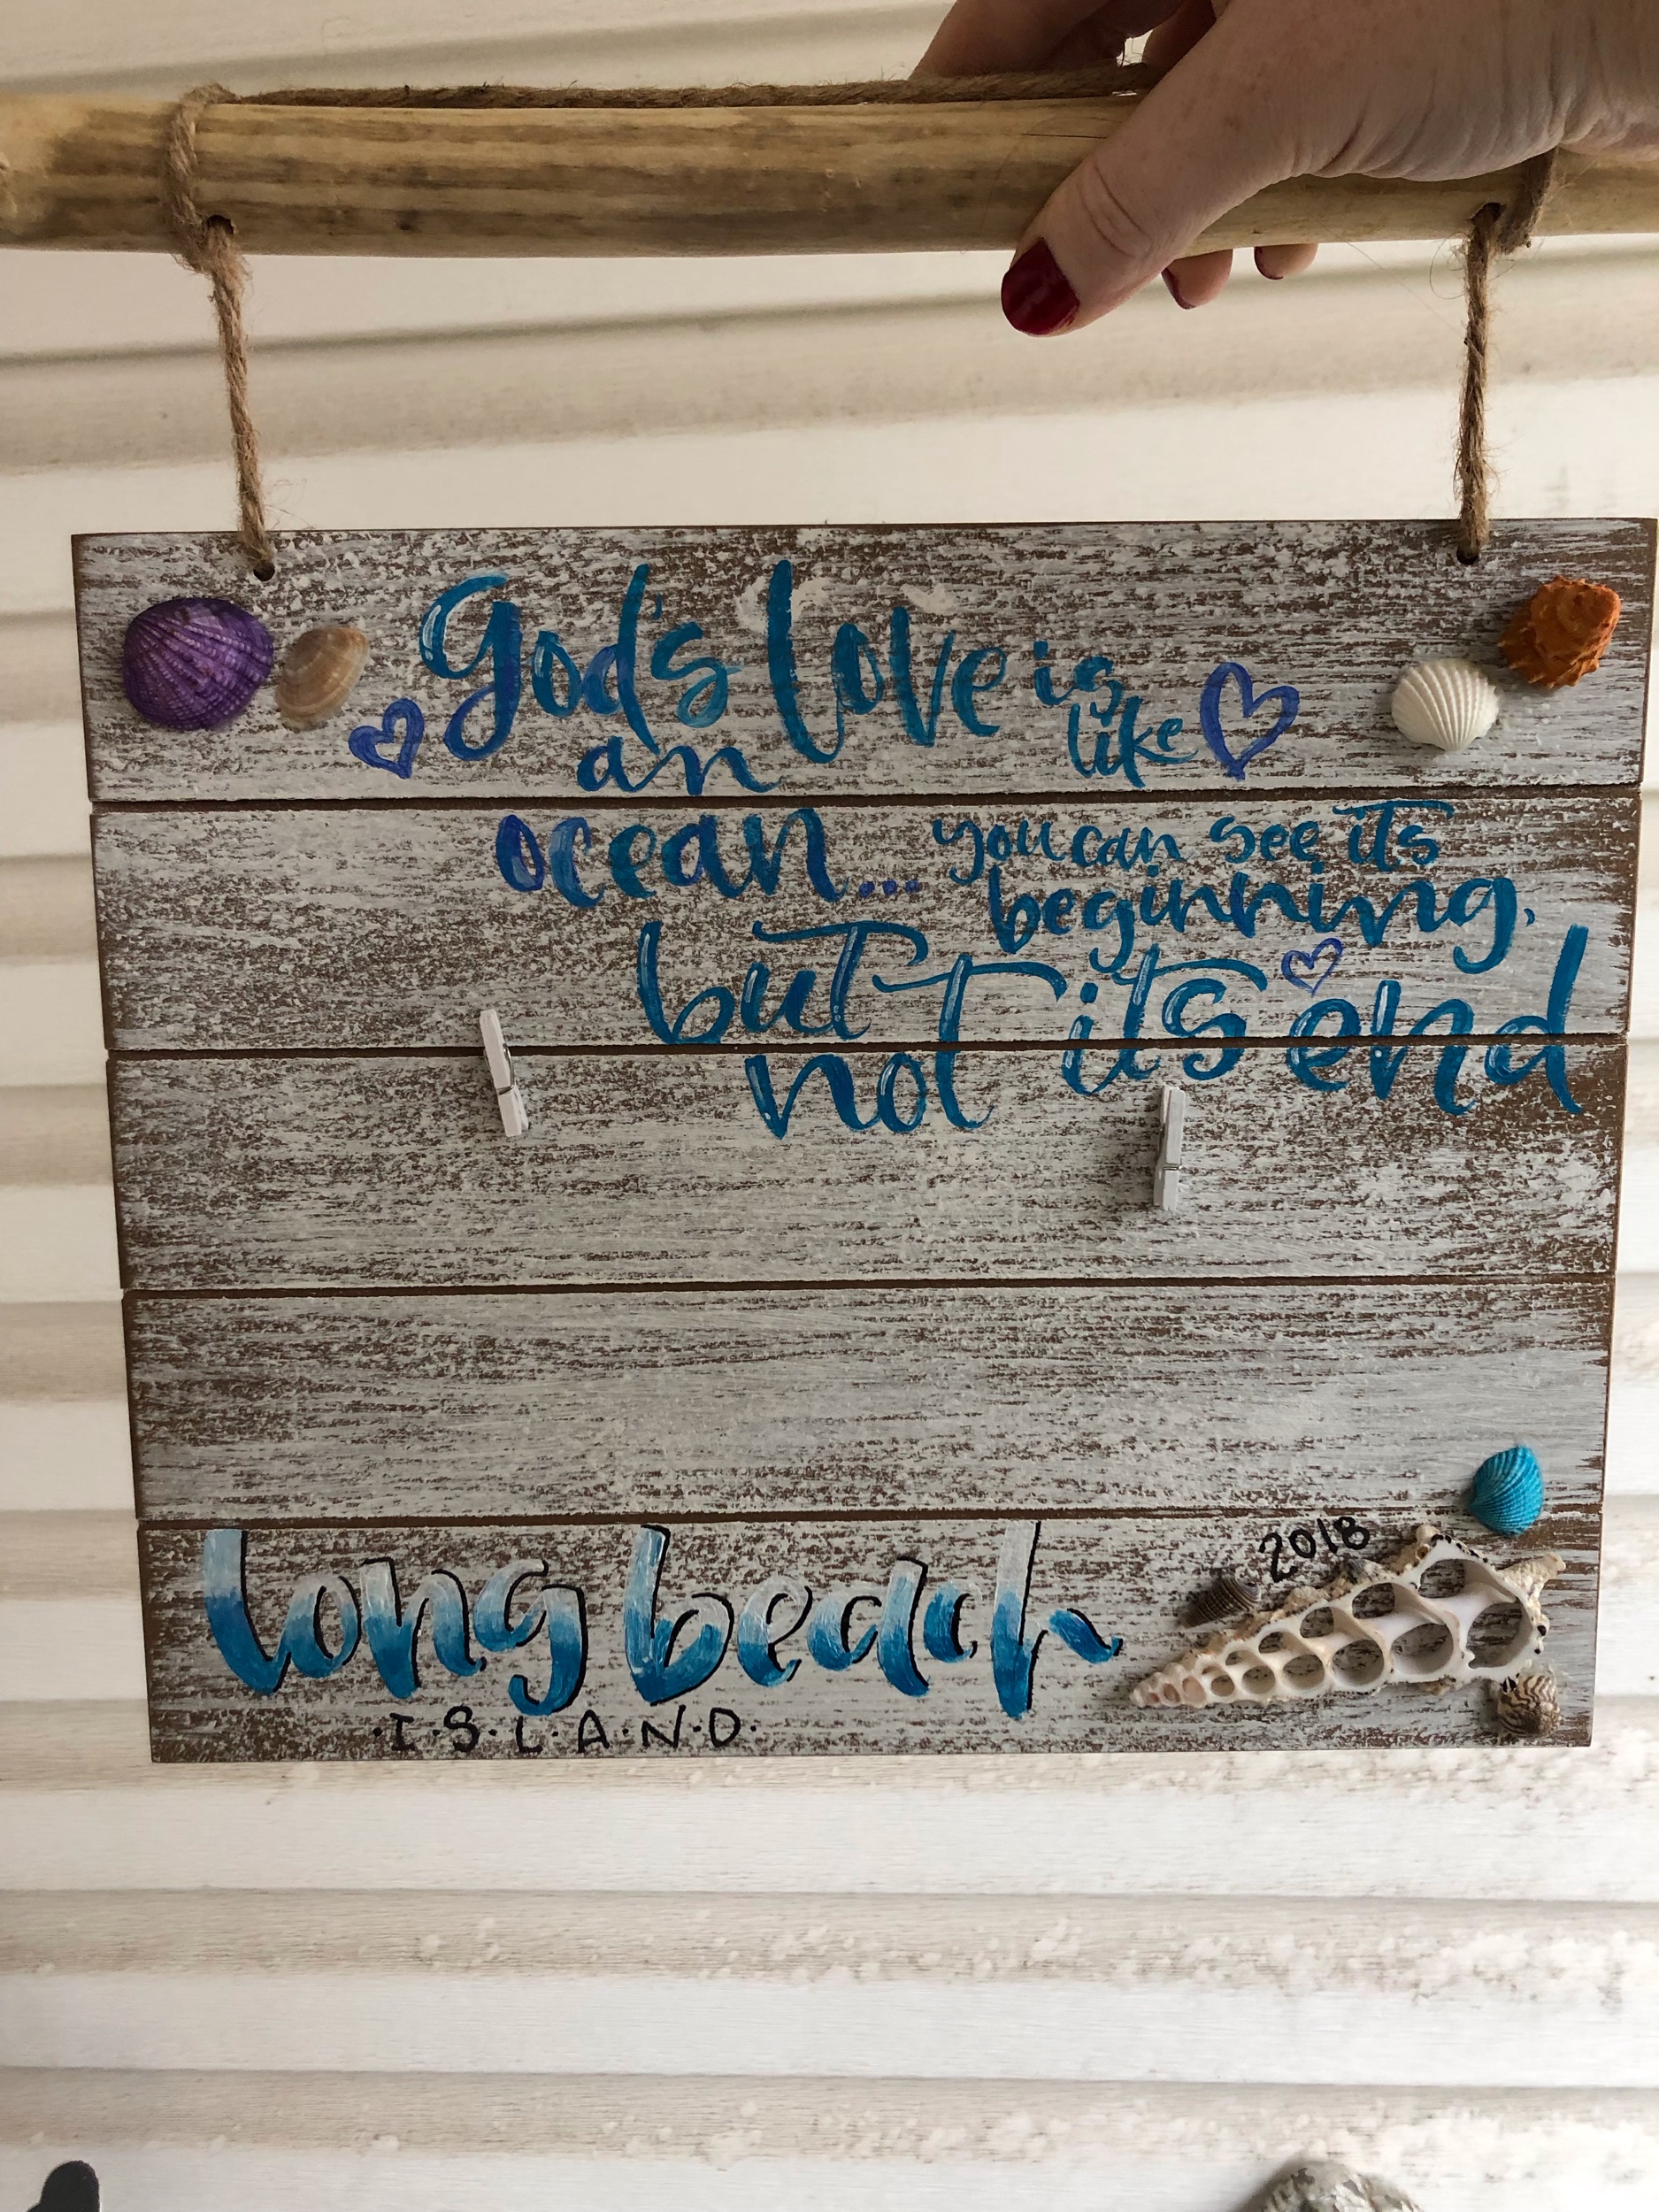 God's love is
like
an
ocean... you can see its
beginning,
but
not its end
2018
long beach
·I·S·L·A·N·D·